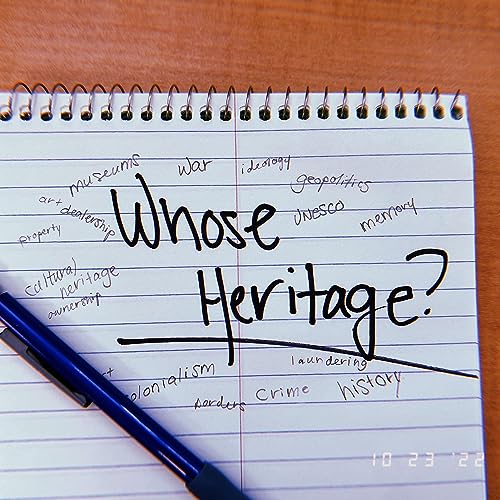 museums
war
ideology
geopolitics
art
dealership
property
UNESCO
memory
Whose
Heritage?
cultural
heritage
ownership
laundering
colonialism
borders
crime
history
10 23 '22